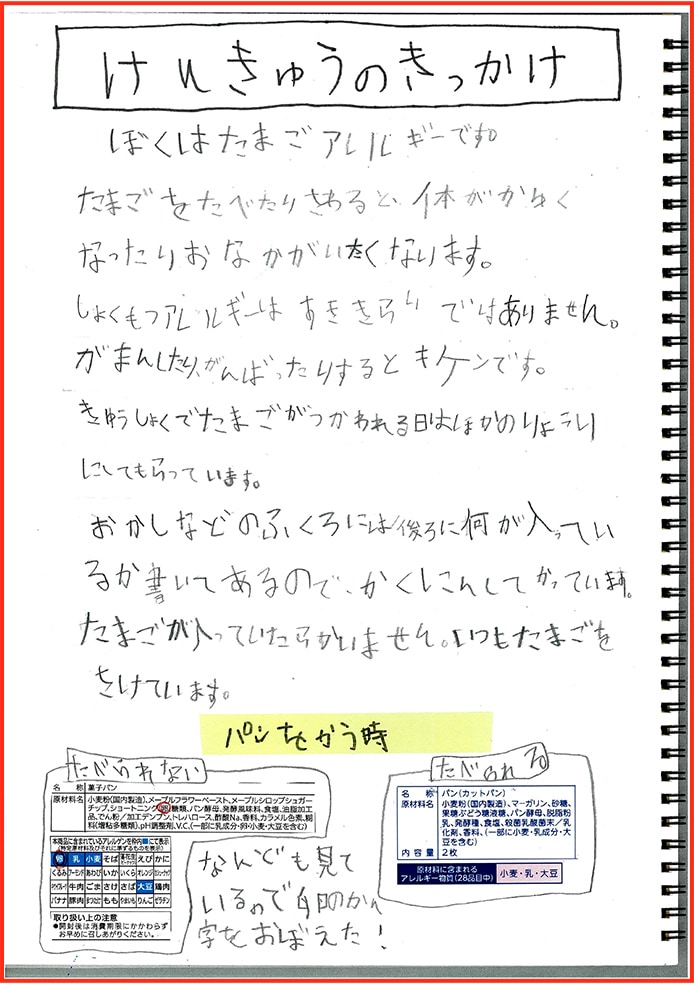 けんきゅうのきっかけ
ぼくはたまごアレルギーです。
たまごをたべたりさわると、体がかゆく
なったりおなかがいたくなります。
しょくもつアレルギーはすききらいではありません。
がまんしたり、がんばったりするとキケンです。
きゅうしょくでたまごがつかわれる日はほかのりょうり
にしてもらっています。
おかしなどのふくろには後ろに何が入ってい
るか書いてあるので、かくにんしてかっています。
たまごが入っていたらかいません。いつもたまごを
さけています。
パンをかう時
たべられない
名 称 菓子パン
原材料名 小麦粉(国内製造)、メープルフラワーペースト、メープルシロップシュガー
チップ、ショートニング、卵、糖類、パン酵母、発酵風味料、食塩、油脂加工
品、でん粉/加工デンプン、トレハロース、酢酸Na、香料、カラメル色素、糊
料(増粘多糖類)、pH調整剤、V.C、(一部に乳成分・卵・小麦・大豆を含む)
本商品に含まれているアレルゲンを枠内■にて表示
(特定原材料及びそれに準ずるものを表示)
卵 乳 小麦 そば 落花生 えび かに
くるみ アーモンド あわび いか いくら オレンジ カシューナッツ
キウイフルーツ 牛肉 ごま さけ さば 大豆 鶏肉
バナナ 豚肉 まつたけ もも やまいも りんご ゼラチン
取り扱い上の注意
●開封後は消費期限にかかわらず
お早めに召し上がりください。
なんども見て
いるので卵のかん
字をおぼえた!
たべられる
名 称 パン(カットパン)
原材料名 小麦粉(国内製造)、マーガリン、砂糖、
果糖ぶどう糖液糖、パン酵母、脱脂粉
乳、発酵種、食塩、殺菌乳酸菌末/乳
化剤、香料、(一部に小麦・乳成分・大
豆を含む)
内 容 量 2枚
原材料に含まれる
アレルギー物質(28品目中) 小麦・乳・大豆